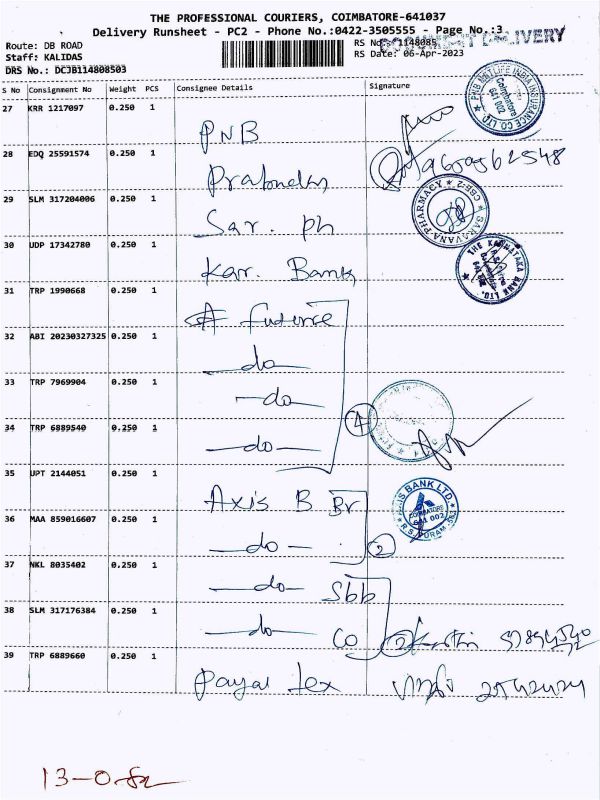 THE PROFESSIONAL COURIERS, COIMBATORE-641037
Delivery Runsheet - PC2 - Phone No.:0422-3505555 - Page No.:3
DELIVERY
Route: DB ROAD
Staff: KALIDAS
DRS No.: DCJB114808503
RS No
RS Date: 06-Apr-2023
S No Consignment No Weight PCS Consignee Details Signature
27 KRR 1217097 0.250 1
PNB
PNB METLIFE INDIA INSURANCE CO. LTD. Coimbatore 641 002
28 EDQ 25591574 0.250 1
29 SLM 317204006 0.250 1
Sar. Ph
SARAVANA PHARMACY CBE-2
30 UDP 17342780 0.250 1
Kar. Bank
THE KARNATAKA BANK LTD.
31 TRP 1990668 0.250 1
Future
32 ABI 20230327325 0.250 1
-do-
33 TRP 7969904 0.250 1
-do-
34 TRP 6889540 0.250 1
-do-
4
35 UPT 2144051 0.250 1
Axis B Br
AXIS BANK LTD. COIMBATORE 641 002 R.S. PURAM
36 MAA 859016607 0.250 1
-do-
2
37 NKL 8035402 0.250 1
-do- Sbb
38 SLM 317176384 0.250 1
-do- Co
2
39 TRP 6889660 0.250 1
Payal tex